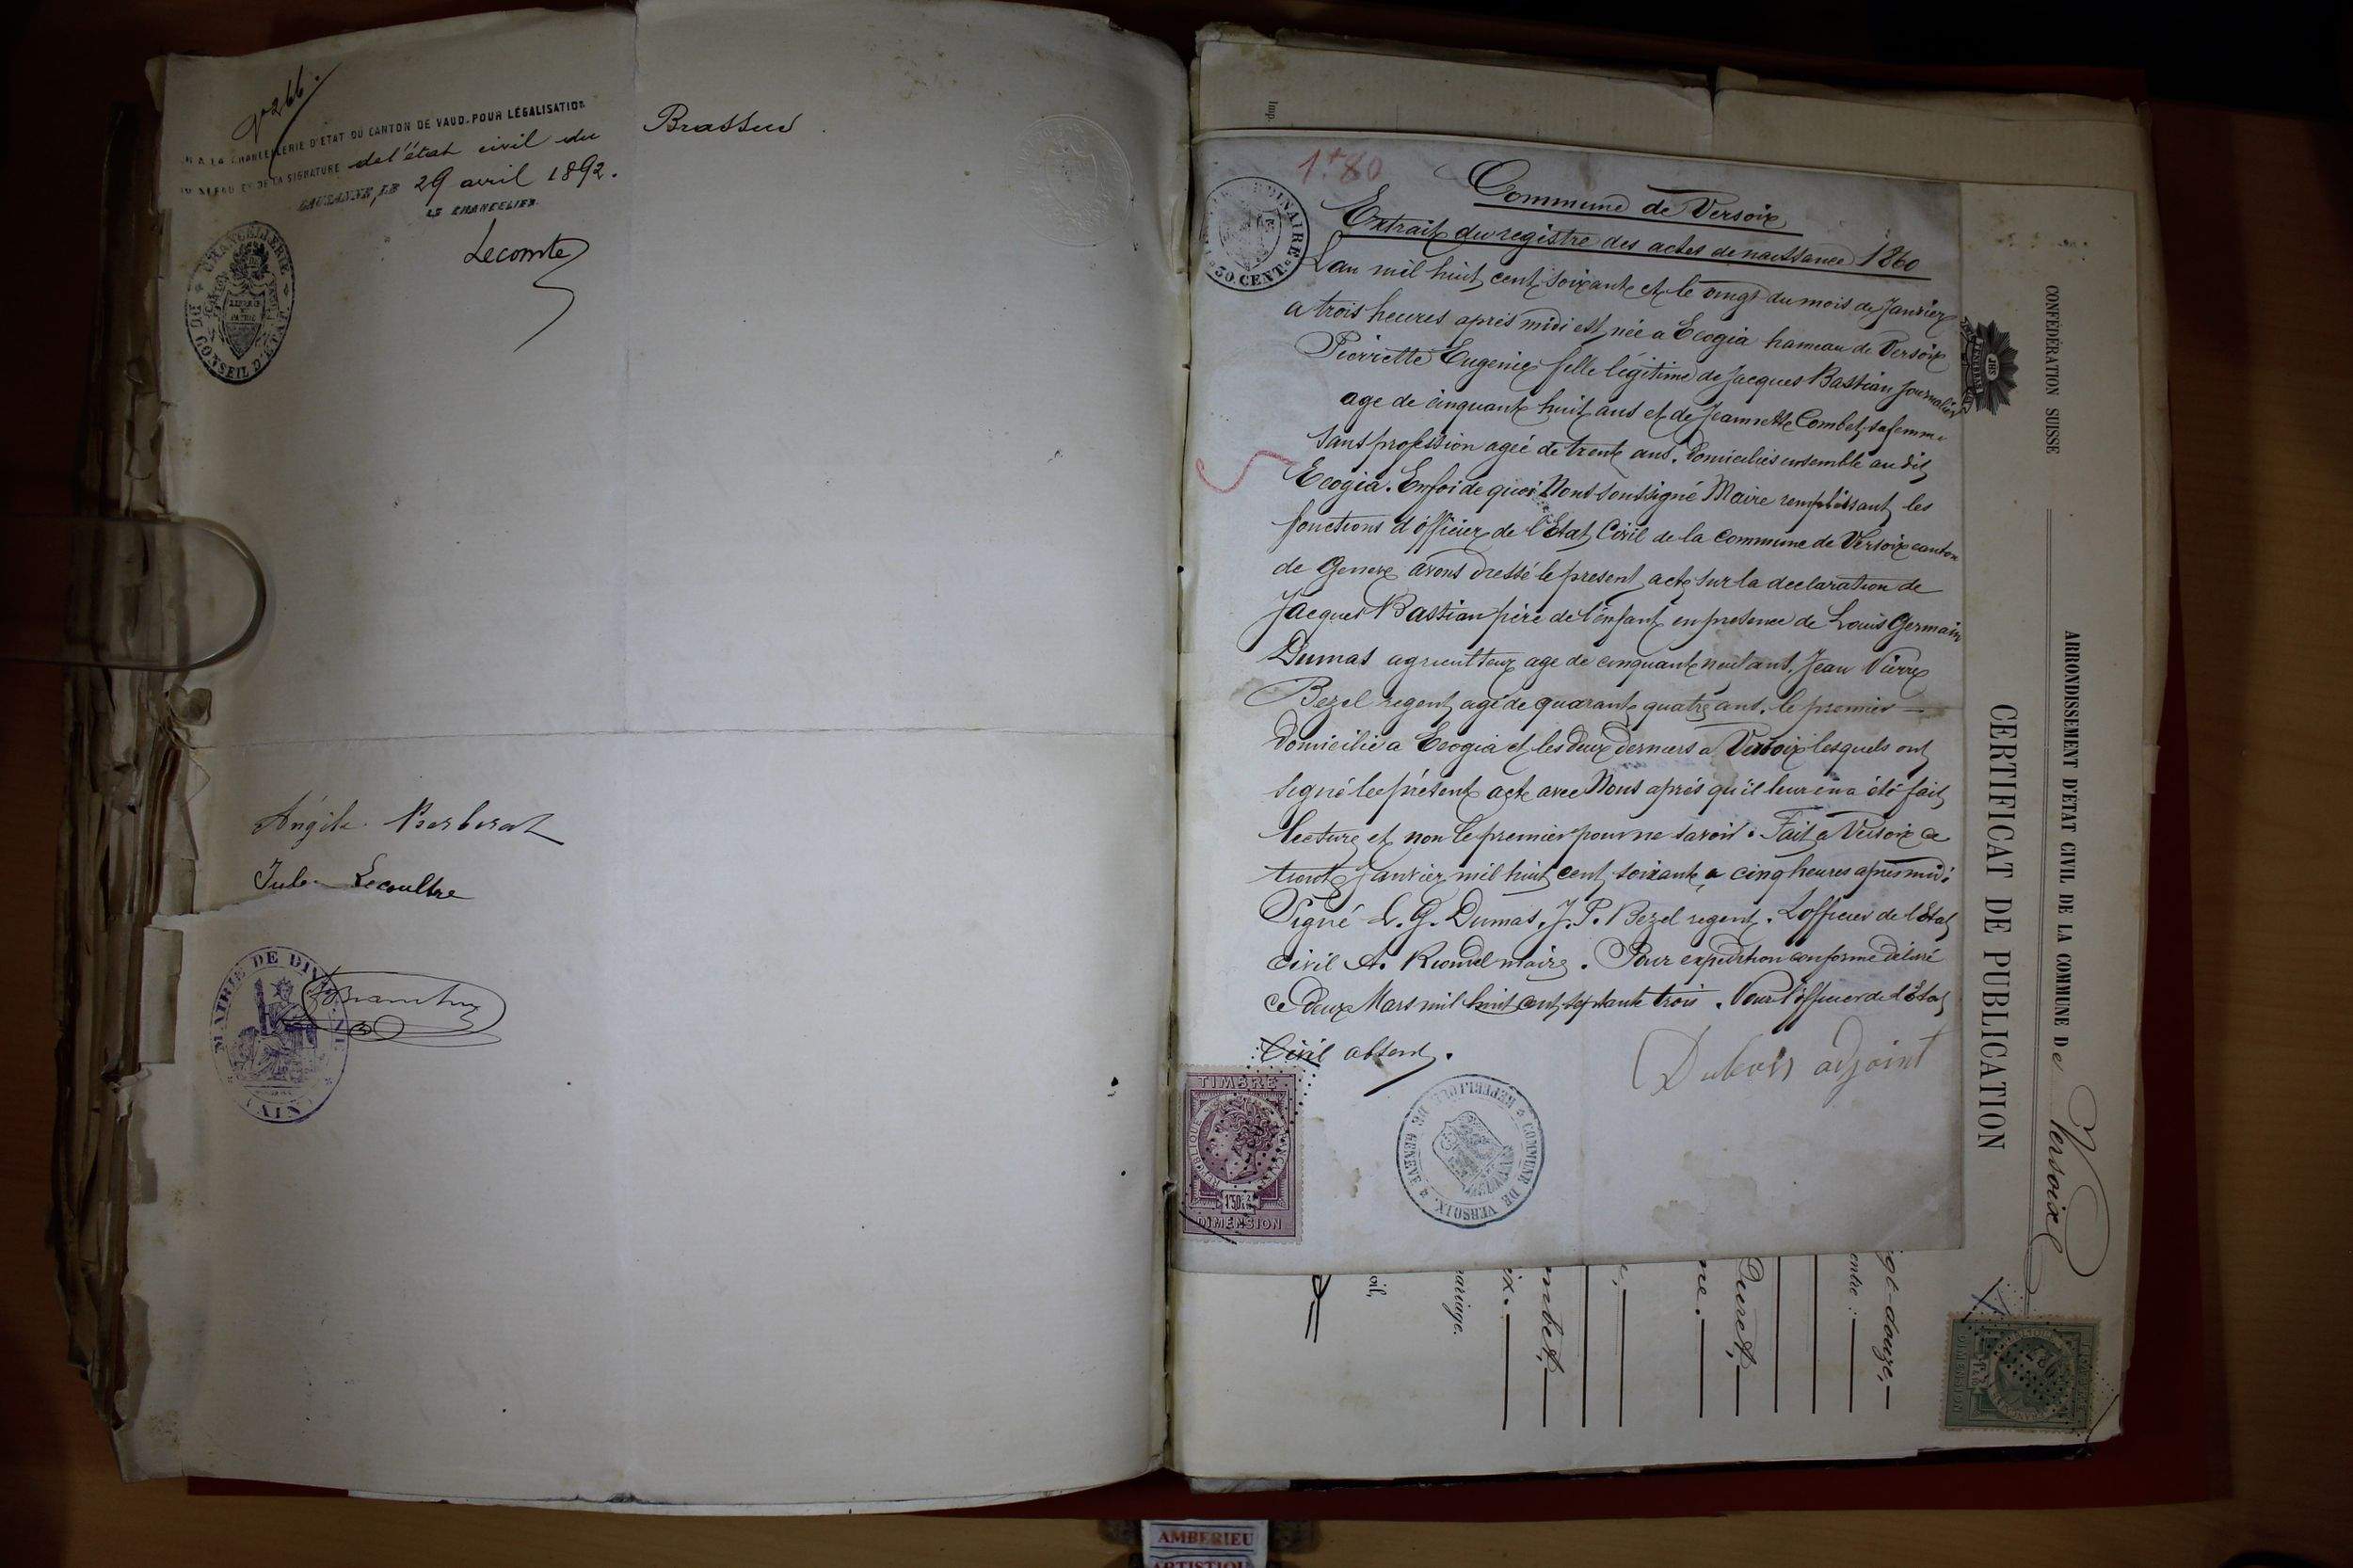 N° 266.
VU A LA CHANCELLERIE D'ETAT DU CANTON DE VAUD. POUR LÉGALISATION
DU SCEAU ET DE LA SIGNATURE de l'état civil du
Brassus.
LAUSANNE, LE 29 avril 1892.
LE CHANCELIER
Lecomte
CHANCELLERIE
DU CONSEIL D'ETAT
LIBERTÉ ET PATRIE
Angèle Berberat
Jules Lecoultre
MAIRIE DE DIVONNE
(AIN)
1f.80
50 CENT.
Commune de Versoix
Extrait du registre des actes de naissance 1860
L'an mil huit cent soixante et le vingt du mois de Janvier
a trois heures après midi est née a Ecogia hameau de Versoix
Pierrette Eugenie fille légitime de Jacques Bastian journalier
age de cinquante huit ans et de Jeannette Combet sa femme
sans profession agée de trente ans. domiciliés ensemble au dit
Ecogia. En foi de quoi Nous soussigné Maire remplissant les
fonctions d'officier de l'Etat Civil de la commune de Versoix canton
de Geneve avons dressé le present acte sur la declaration de
Jacques Bastian père de l'enfant en presence de Louis Germain
Dumas agriculteur age de cinquante neuf ans, Jean Pierre
Bezel regent agé de quarante quatre ans. le premier —
domicilié a Ecogia et les deux derniers a Versoix lesquels ont
signé le présent acte avec Nous après qu'il leur en a été fait
lecture et non le premier pour ne savoir. Fait a Versoix ce
trente Janvier mil huit cent soixante a cinq heures après midi
Signé L. G. Dumas. J. P. Bezel regent. L'officier de l'Etat
civil A. maire. Pour expedition conforme délivré
ce deux Mars mil huit cent septante trois. Pour l'officier de l'Etat
Civil absent.
Dubois adjoint
COMMUNE DE VERSOIX.
REPUBLIQUE DE GENEVE
TIMBRE
REPUBLIQUE FRANÇAISE
1f50c
DIMENSION
Imp.
CONFÉDÉRATION SUISSE
ARRONDISSEMENT D'ETAT CIVIL DE LA COMMUNE De Versoix
CERTIFICAT DE PUBLICATION
gt-douze,
entre :
Duret,
ne.
mbet,
ix.
mariage.
oil,
DIMENSION
AMBERIEU
ARTISTIQU